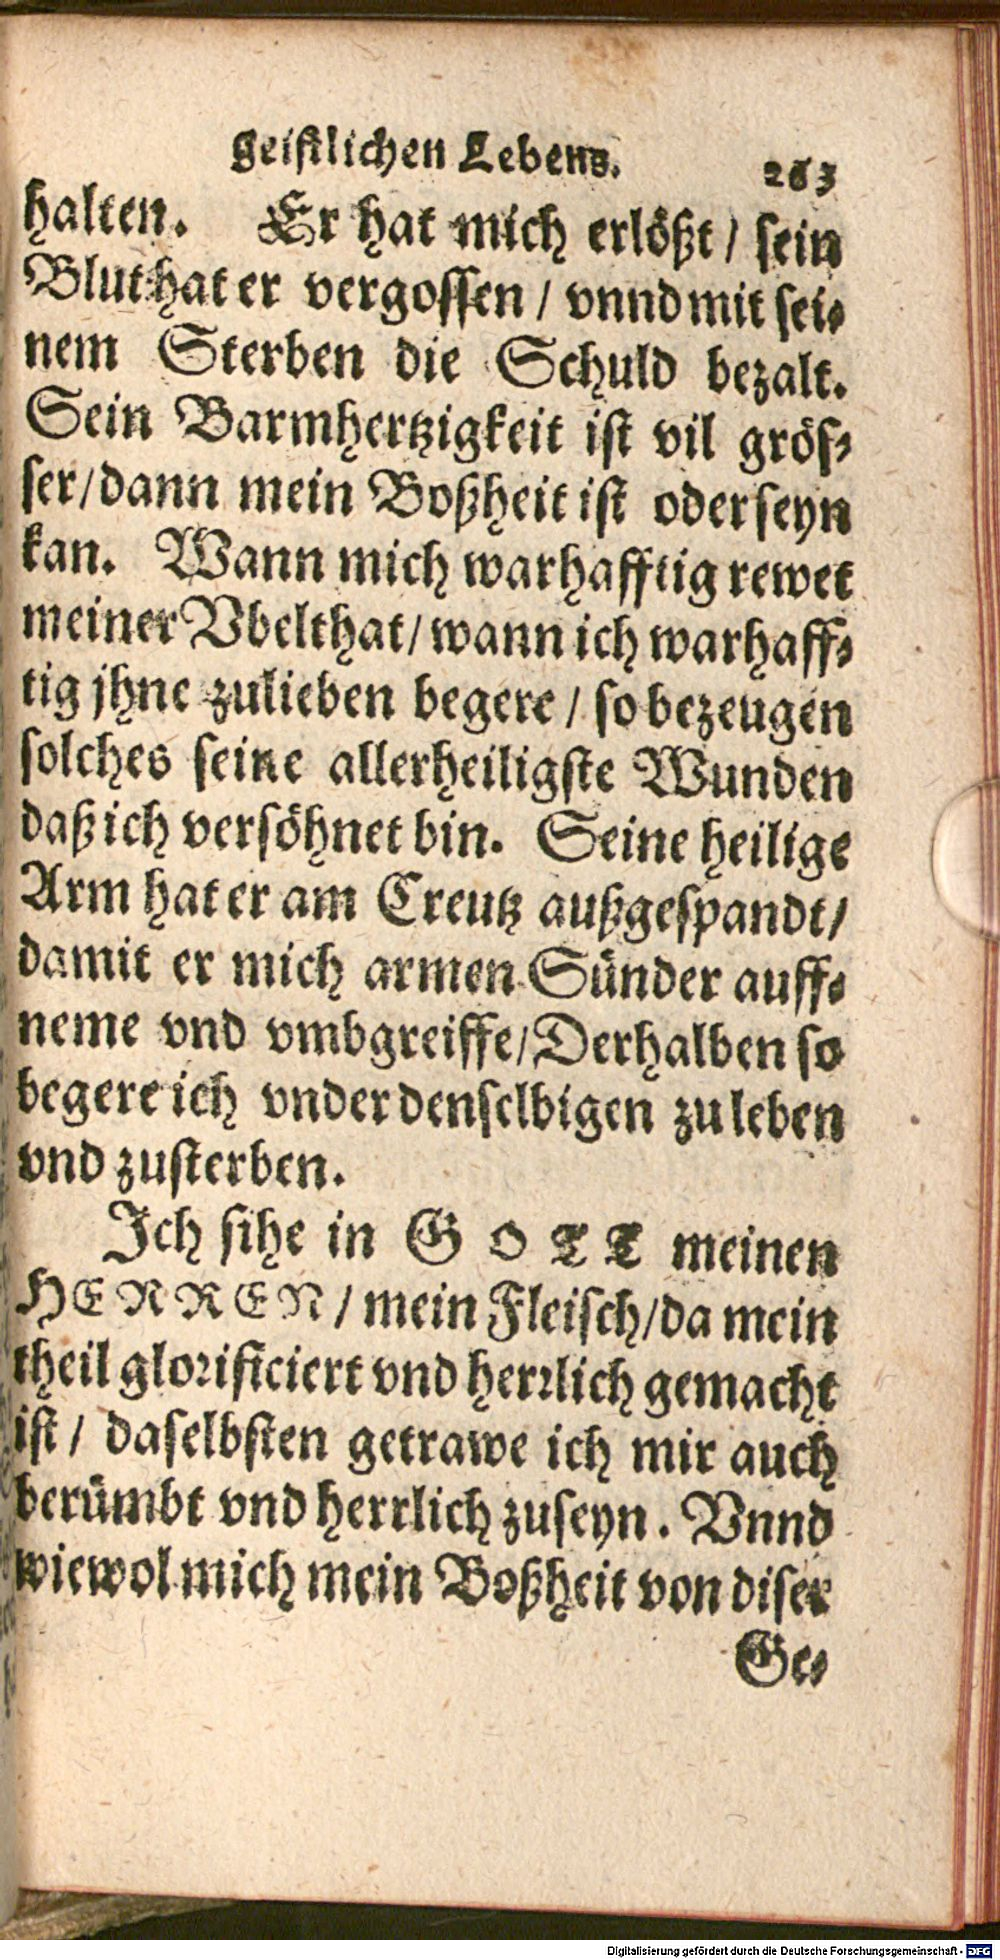 geistlichen Lebens. 263
halten. Er hat mich erlößt / sein
Blut hat er vergossen / vnnd mit sei-
nem Sterben die Schuld bezalt.
Sein Barmhertzigkeit ist vil grös-
ser/dann mein Boßheit ist oder seyn
kan. Wann mich warhafftig rewet
meiner Vbelthat/wann ich warhaff-
tig jhne zulieben begere / so bezeugen
solches seine allerheiligste Wunden
daß ich versöhnet bin. Seine heilige
Arm hat er am Creutz außgespandt/
damit er mich armen Sünder auff-
neme vnd vmbgreiffe/Derhalben so
begere ich vnder denselbigen zu leben
vnd zusterben.
Ich sihe in GOTT meinen
HERREN/mein Fleisch/da mein
theil glorificiert vnd herrlich gemacht
ist / daselbsten getrawe ich mir auch
berümbt vnd herrlich zuseyn. Vnnd
wiewol mich mein Boßheit von diser
Ge-
Digitalisierung gefördert durch die Deutsche Forschungsgemeinschaft - DFG